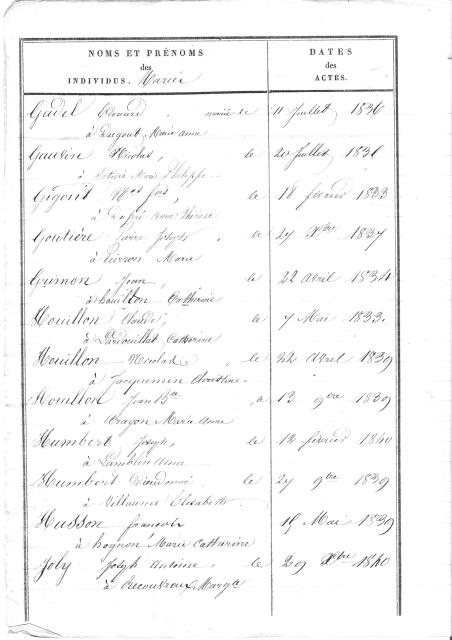 NOMS ET PRÉNOMS
des
INDIVIDUS. Mariés
DATES
des
ACTES.
Gadel Edouard, marié le 11 Juillet 1836
à Dugout Marie anna
Gauvin Nicolas, le 20 Juillet 1831
à Marie Philippe
Gigout Nas fois, le 18 février 1833
à Dupré anne Thérèse
Goutière Pierre Joseph, le 27 Xbre 1837
à Pierron Marie
Grimon Jean, le 22 avril 1834
à houillon Catherine
Houillon Claude, le 7 Mai 1833.
à Lardouillet Catherine
Houillon Nicolas, le 22 avril 1839
à Jacquemin Christine
Houillon Jean Bte, le 13 9bre 1839
à Aragon Marie Anne
Humbert Joseph, le 12 février 1840
à Lamblin anne
Humbert Dieudonné, le 27 9bre 1839
à Villaume Elisabeth
Husson francois 15 Mai 1839
à hognon Marie Catherine
Joly Joseph Antoine, le 29 Xbre 1840
à Recouvreux Margte